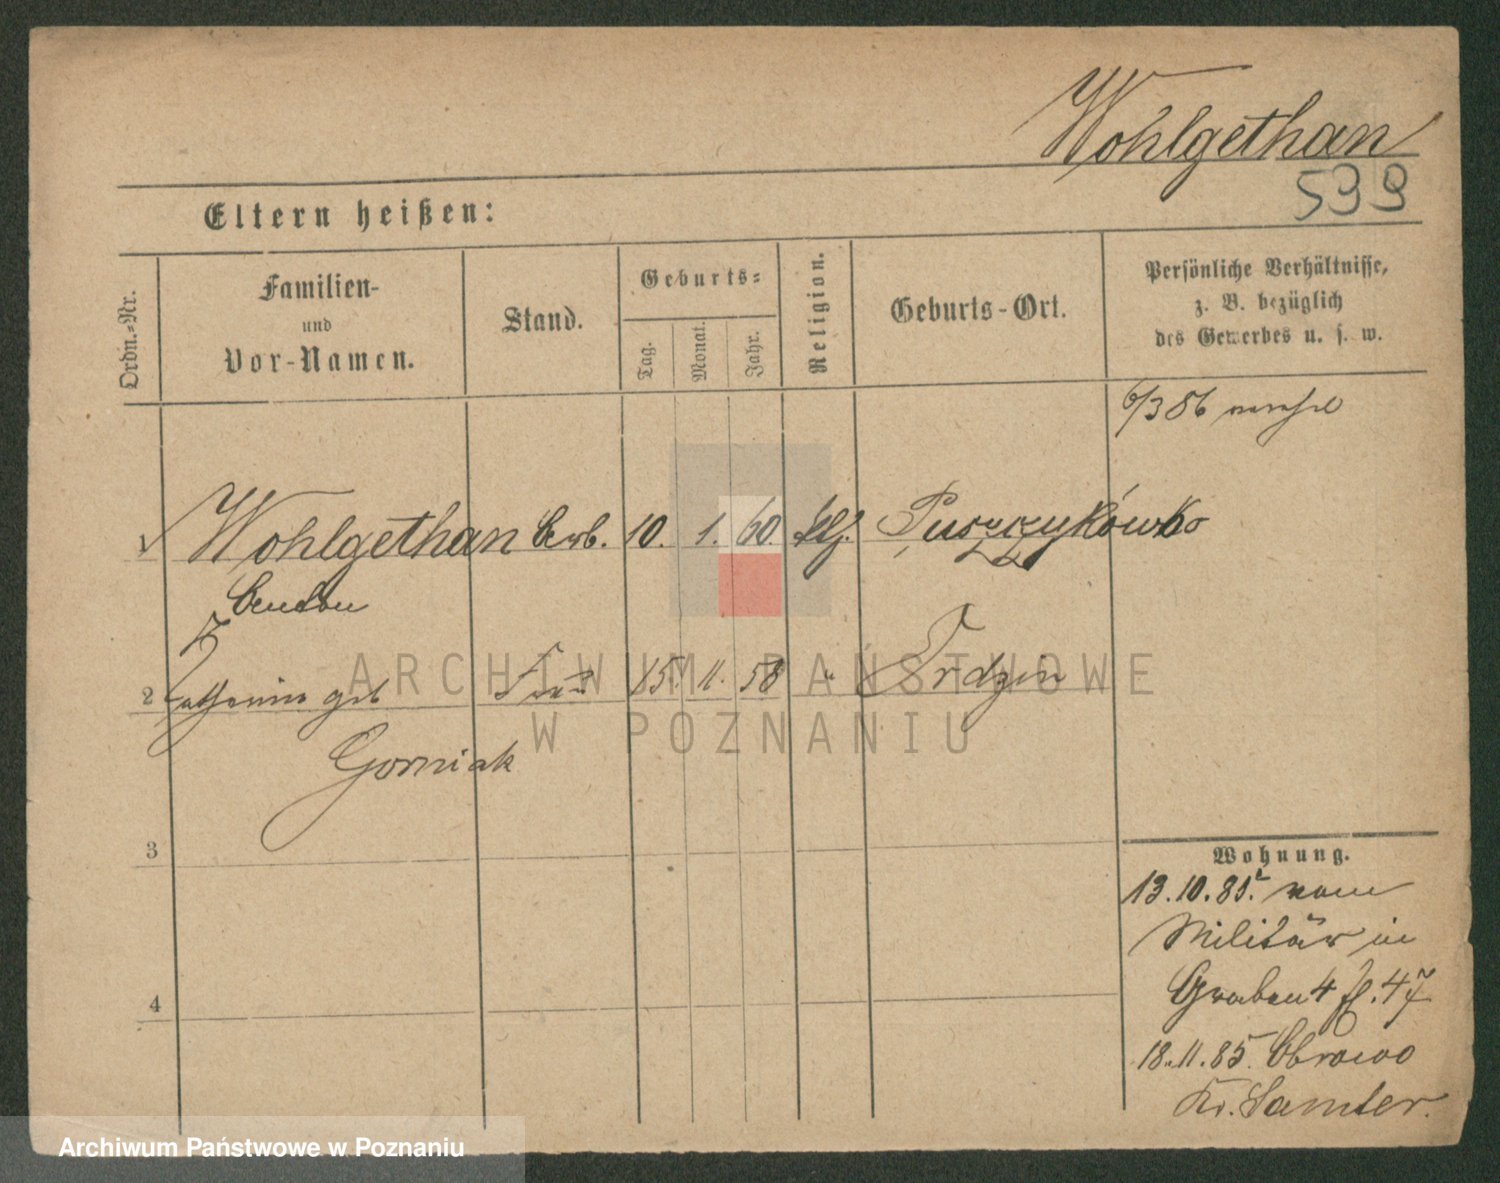 Wohlgethan
539
Eltern heißen:
Ordn.-Nr.
Familien-
und
Vor-Namen.
Stand.
Geburts-
Tag.
Monat.
Jahr.
Religion.
Geburts-Ort.
Persönliche Verhältnisse,
z. B. bezüglich
des Gewerbes u. s. w.
6/3 86
1 Wohlgethan 10. 1. 60. Puszczykówko
2 geb Frau 15. 11. 58 " Ordzin
Gorniak
3
4
Wohnung.
13.10.85. vom
Militär in
Graben 4
18.11.85. Obrowo
Kr. Samter.
ARCHIWUM PAŃSTWOWE
W POZNANIU
Archiwum Państwowe w Poznaniu